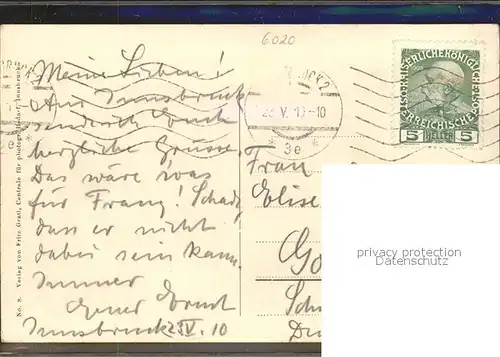 6020
Meine Lieben!
Aus Innsbruck
sendet Euch
herzliche Grüsse.
Das wäre was
für Franz! Schade
dass er nicht
dabei sein kann.
Immer
Euer Ernst
Innsbruck 23 V. 10
No. 8. Verlag von Fritz Gratl, Centrale für photographische Innsbruck
V. 10-10
* 3e *
KAISERLICHE KÖNIGLICHE
ÖSTERREICHISCHE
5 HELLER 5
Frau
Elise
Go
privacy protection
Datenschutz